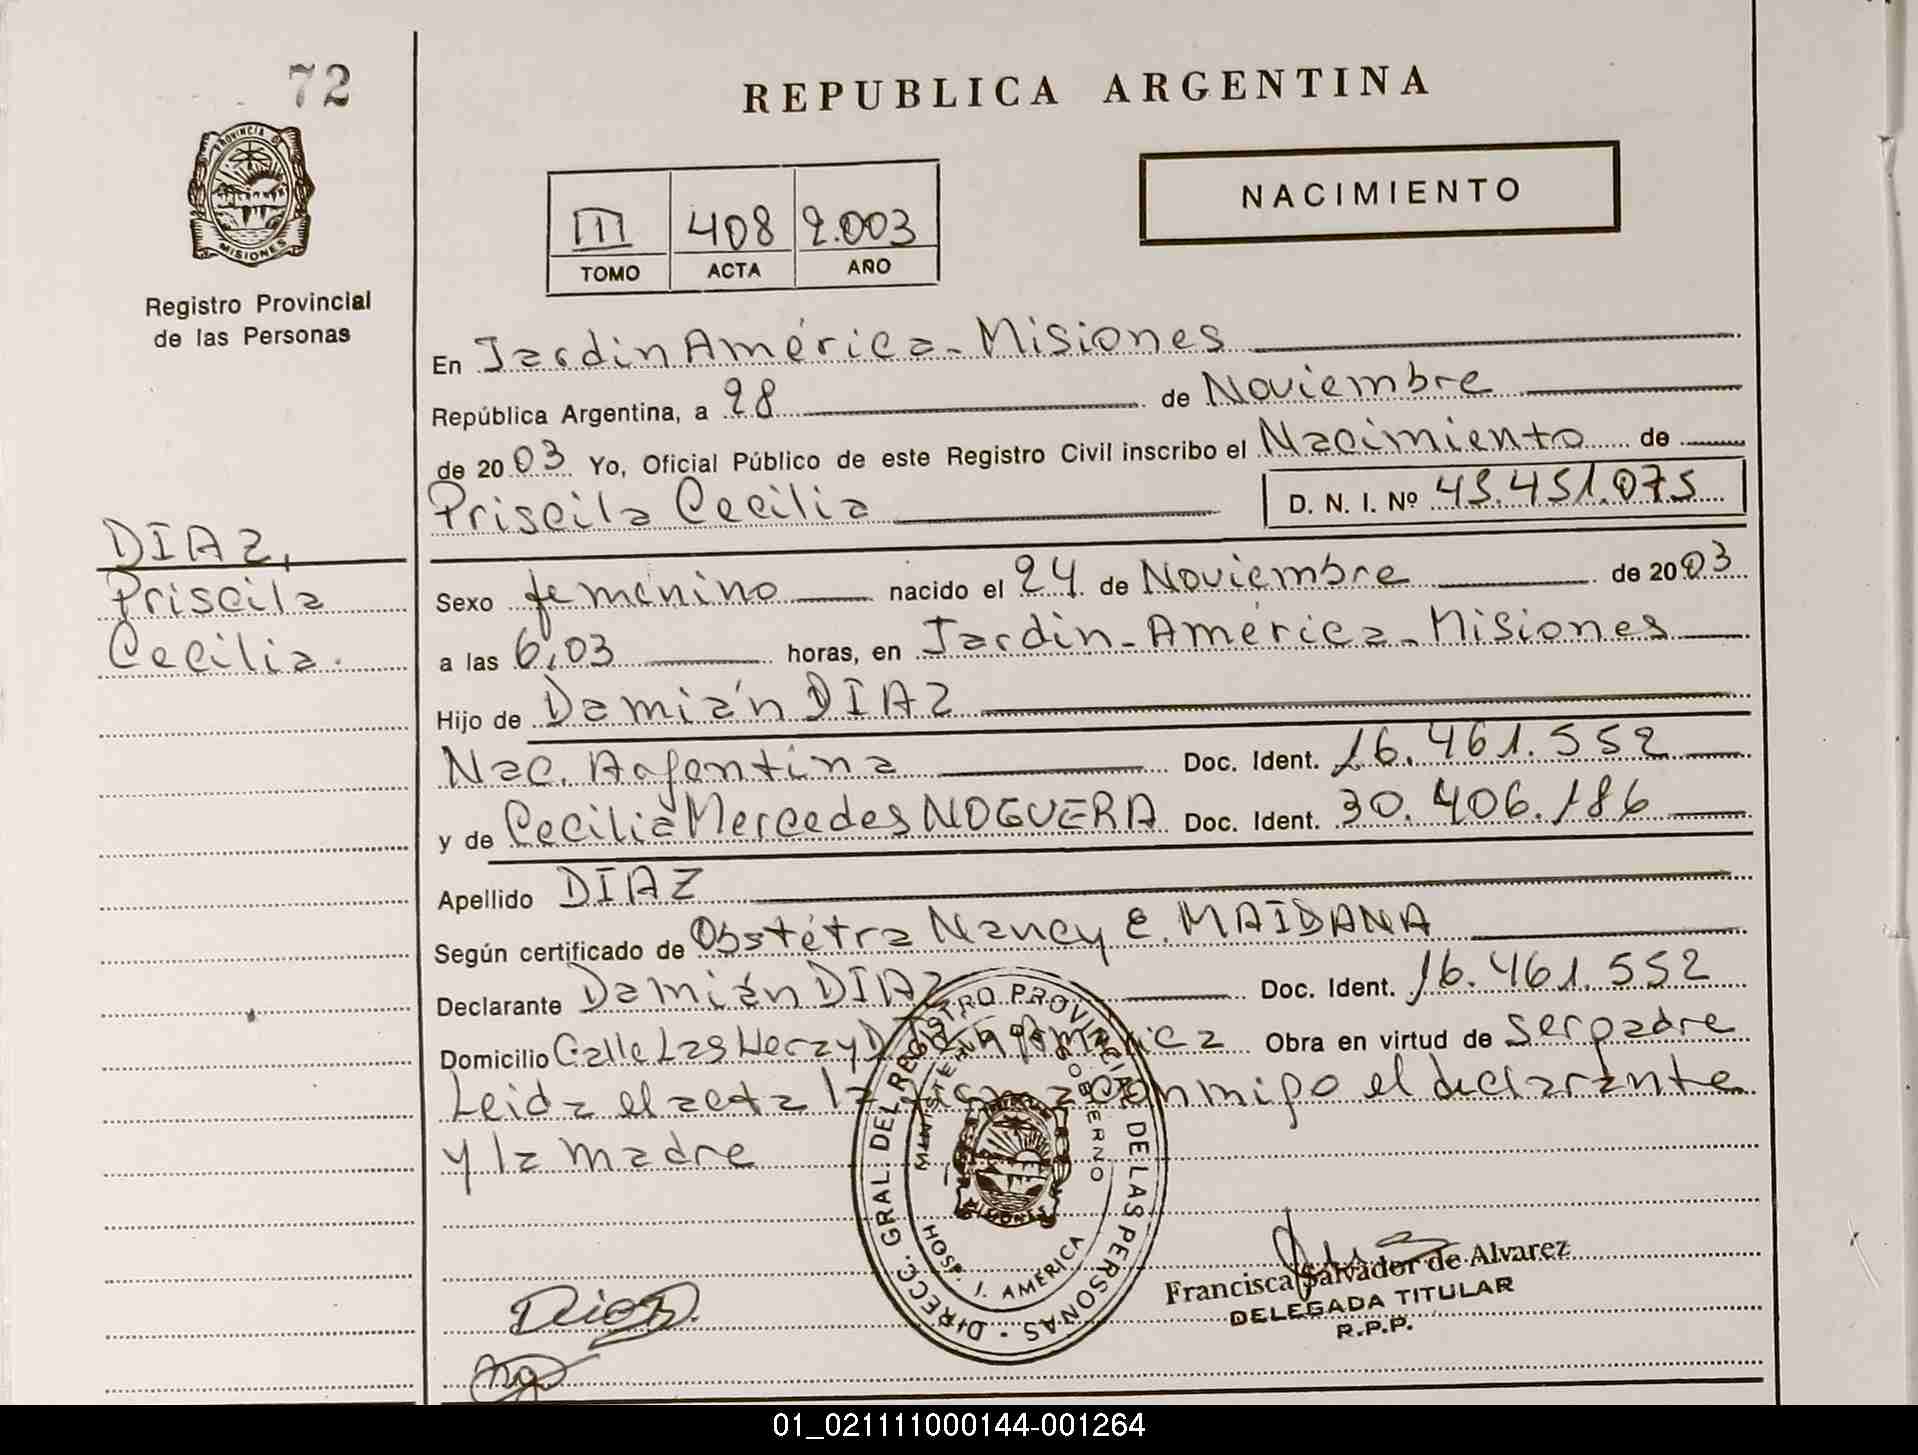 72
REPUBLICA ARGENTINA
PROVINCIA DE
MISIONES
Registro Provincial
de las Personas
III 408 2.003
TOMO ACTA AÑO
NACIMIENTO
En Jardin América - Misiones
República Argentina, a 28 de Noviembre
de 2003 Yo, Oficial Público de este Registro Civil inscribo el Nacimiento de
Priscila Cecilia D. N. I. Nº 45.451.075
DIAZ,
Priscila
Cecilia.
Sexo femenino nacido el 24 de Noviembre de 2003
a las 6,03 horas, en Jardin - América - Misiones
Hijo de Damián DIAZ
Nac. Argentina Doc. Ident. 16.461.552
y de Cecilia Mercedes NOGUERA Doc. Ident. 30.406.186
Apellido DIAZ
Según certificado de Obstétra Nancy E. MAIDANA
Declarante Damián DIAZ Doc. Ident. 16.461.552
Domicilio Calle Las Heras y América Obra en virtud de ser padre
Leida el acta la conmigo el declarante
y la madre
DIRECC. GRAL DEL REGISTRO PROVINCIAL DE LAS PERSONAS
MINISTERIO DE GOBIERNO
MISIONES
HOSP. J. AMERICA
Diaz D.
Francisca Salvador de Alvarez
DELEGADA TITULAR
R.P.P.
01_021111000144-001264